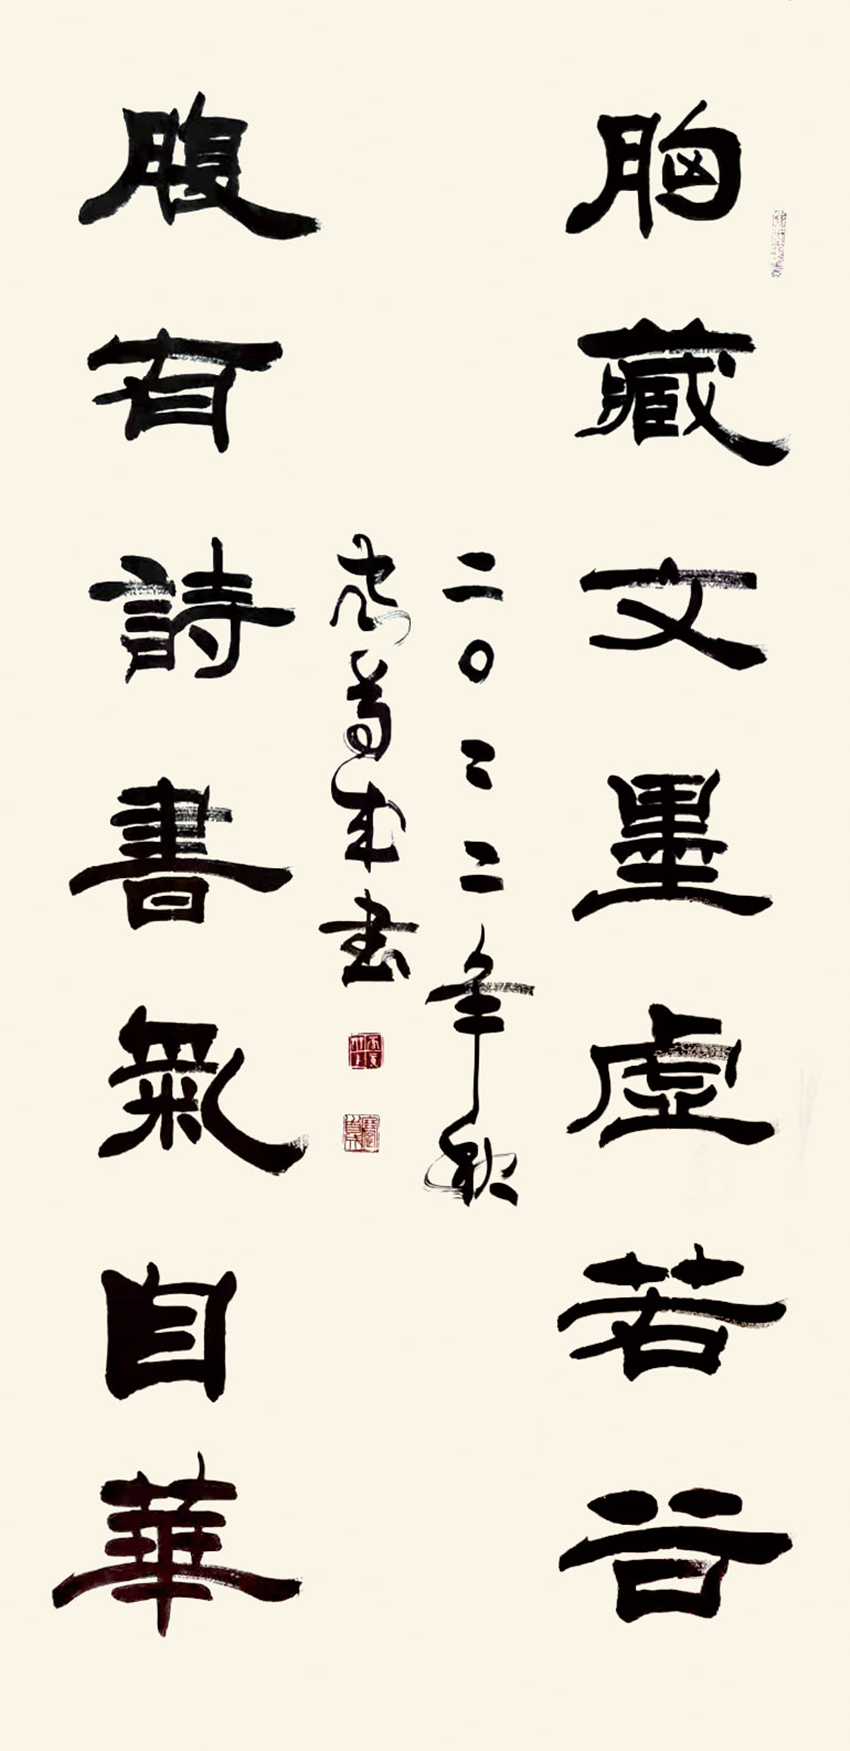 胸藏文墨虛若谷
腹有詩書氣自華
二〇二二年秋
書